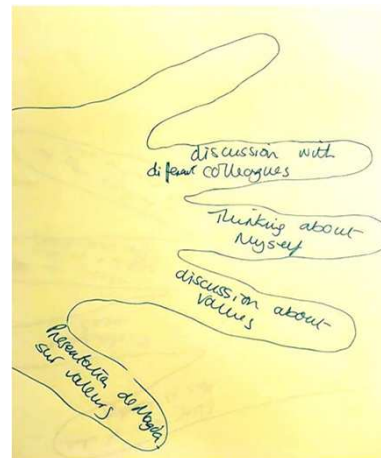 discussion with
diferent colleagues
Thinking about
Myself
discussion about
values
Présentation de Magda
sur valeurs